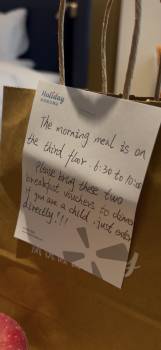 Holiday
The morning meal is on
the third floor. 6:30 to 10:00
Please bring these two
breakfast vouchers to dinner
if you are a child, just enter
directly!!!